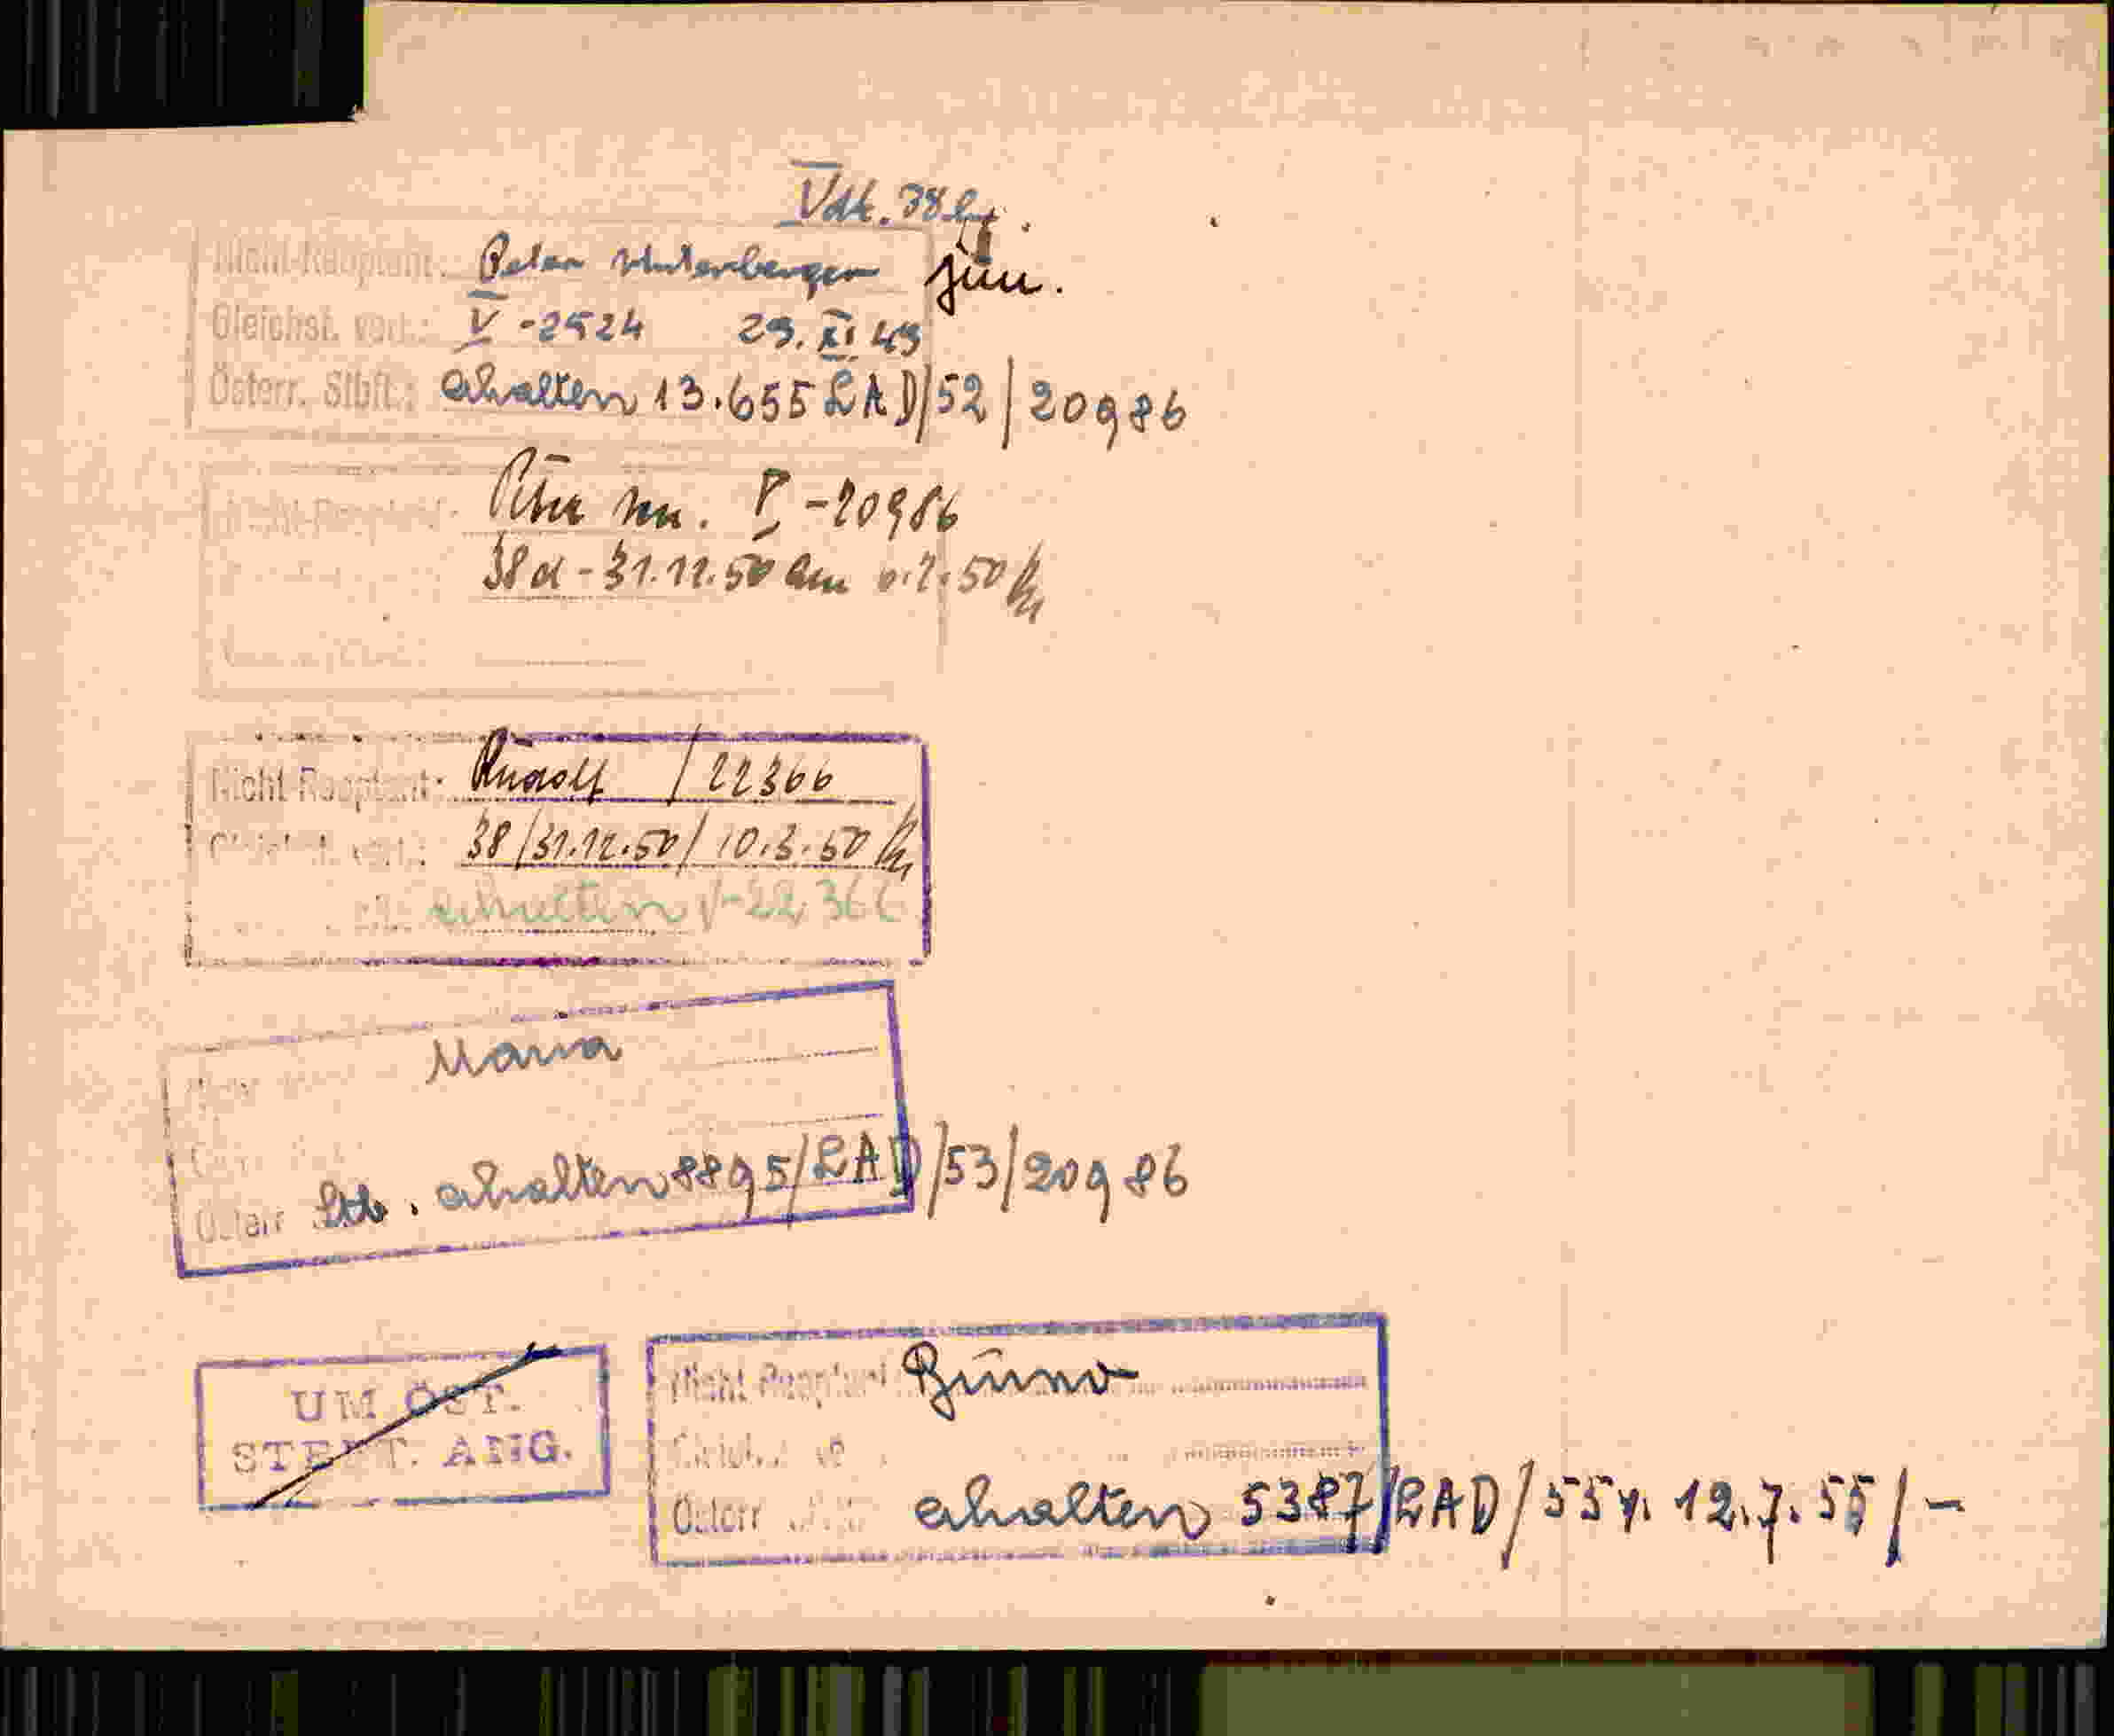 Nicht-Reoptant: Peter Unterberger jun.
Gleichst. verl.: V -2524 29. XI 49
Österr. Stbft.: erhalten 13.655 LAD/52/20986
Nicht-Reoptant: Peter sen. V -20986
38d - 31.12.50 am 50
Nicht Reoptant: Rudolf / 22366
38/31.12.50/ 10.3.50
erhalten V-22366
Maria
Österr erhalten 8895/LAD/53/20986
UM ÖST.
STBFT. ANG.
Nicht Reoptant Bruno
Österr erhalten 5387/LAD/55 v. 12.7.55/-